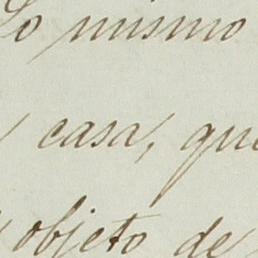 Lo mismo
casa, que
objeto de